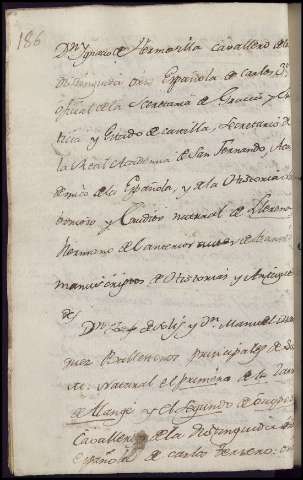 186
Dn. Ignacio de Hermosilla Cavallero de la
distinguida orn Española de Carlos 3º
oficial de la Secretaria de Gracia y Jus
ticia y Estado de Castilla, Secretario de
la Real Academia de San Fernando, Aca
demico de la Española, y de la Historia
y Erudito natural de Llerena
Hermano del anterior
manuscriptos de Historias y Antigue
des
Dn. de Solis y Dn. Manuel
Ballesteros principales de
Nacional el primero de la
de Alange y el Segundo de
Cavallero de la distinguida
Española de Carlos tercero: